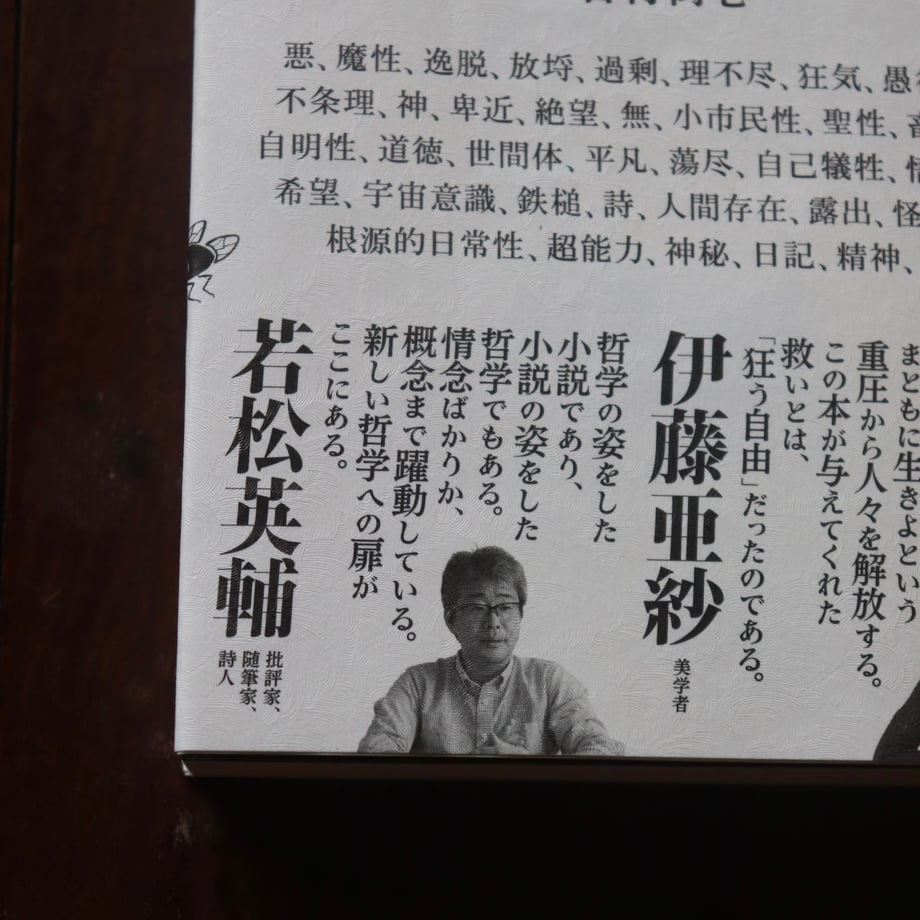 悪、魔性、逸脱、放埒、過剰、理不尽、狂気、愚
不条理、神、卑近、絶望、無、小市民性、聖性、
自明性、道徳、世間体、平凡、蕩尽、自己犠牲、
希望、宇宙意識、鉄槌、詩、人間存在、露出、怪
根源的日常性、超能力、神秘、日記、精神、
まともに生きよという
重圧から人々を解放する。
この本が与えてくれた
救いとは、
「狂う自由」だったのである。
伊藤亜紗
美学者
哲学の姿をした
小説であり、
小説の姿をした
哲学でもある。
情念ばかりか、
概念まで躍動している。
新しい哲学への扉が
ここにある。
若松英輔
批評家、
随筆家、
詩人